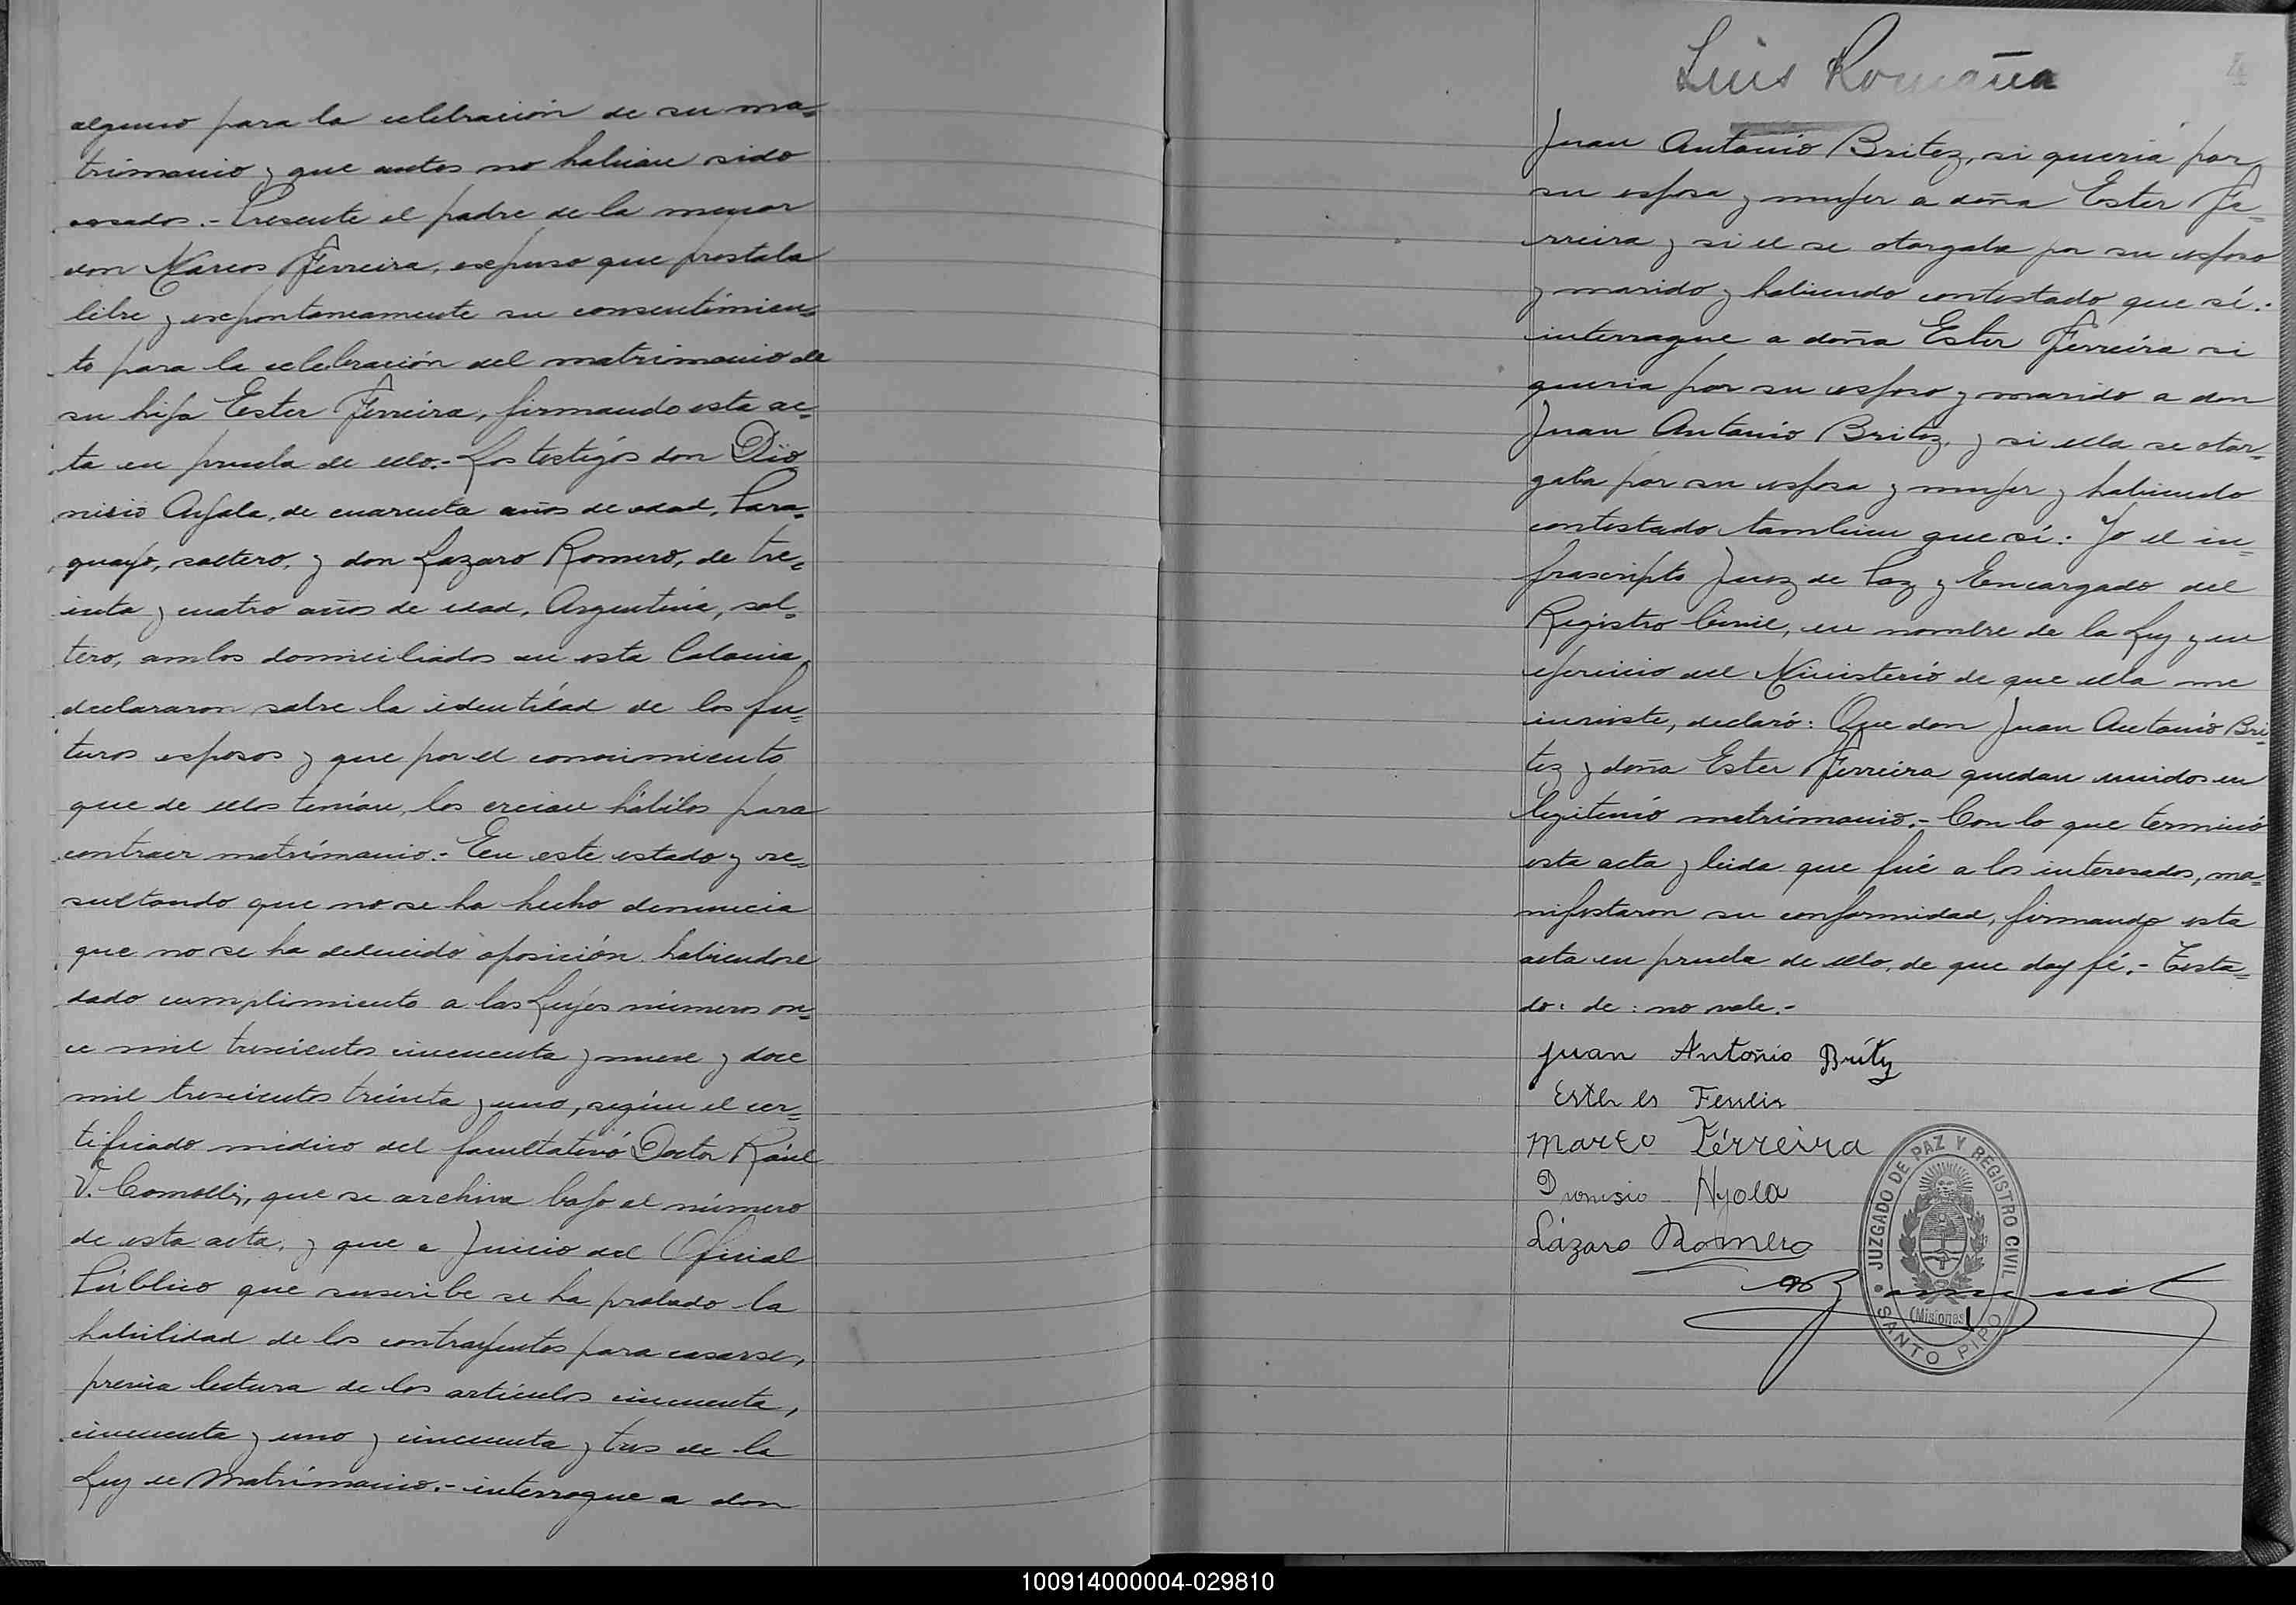 alguno para la celebración de su ma=
trimonio y que antes no habian sido
casados.- Presente el padre de la menor
don Marcos Ferreira, expuso que prestaba
libre y expontaneamente su consentimien=
to para la celebración del matrimonio de
su hija Ester Ferreira, firmando esta ac=
ta en prueba de ello.- Los testigos don Dio
nisio Ayala, de cuarenta años de edad, Para=
guayo, soltero, y don Lazaro Romero, de tre=
inta y cuatro años de edad, Argentino, sol=
tero, ambos domiciliados en esta Colonia,
declararon sobre la identidad de los fu=
turos esposos y que por el conocimiento
que de ellos tenían, los creian hábiles para
contraer matrimonio.- En este estado y re=
sultando que no se ha hecho denuncia
que no se ha deducido oposición habiendose
dado cumplimiento a las Leyes números on=
ce mil trescientos cincuenta y nueve y doce
mil trescientos treinta y uno, según el cer=
tificado médico del facultativo Doctor Raúl
V. Comolli, que se archiva bajo el número
de esta acta, y que a Juicio del Oficial
Público que suscribe se ha probado la
habilidad de los contrayentes para casarse,
previa lectura de los artículos cincuenta,
cincuenta y uno y cincuenta y tres de la
Ley de Matrimonio.- interrogue a don
Luis Romaña
4
Juan Antonio Britez, si queria por
su esposa y mujer a doña Ester Fe=
rreira y si el se otorgaba por su esposo
y marido y habiendo contestado que sí.-
interrogue a doña Ester Ferreira si
queria por su esposo y marido a don
Juan Antonio Britez, y si ella se otor=
gaba por su esposa y mujer y habiendo
contestado tambien que sí: Yo el in=
frascripto Juez de Paz y Encargado del
Registro Civil, en nombre de la Ley y en
ejercicio del Ministerio de que ella me
inviste, declaró: Que don Juan Antonio Bri=
tez y doña Ester Ferreira quedan unidos en
legitimo matrimonio.- Con lo que terminó
esta acta y leida que fué a los interesados, ma=
nifestaron su conformidad, firmando esta
acta en prueba de ello, de que doy fé.- Testa=
do: de: no vale.-
Juan Antonio Brítz
Marco Férreira
Dionisio Ayola
Lázaro Romero
JUZGADO DE PAZ Y REGISTRO CIVIL
(Misiones)
SANTO PIPO
100914000004-029810